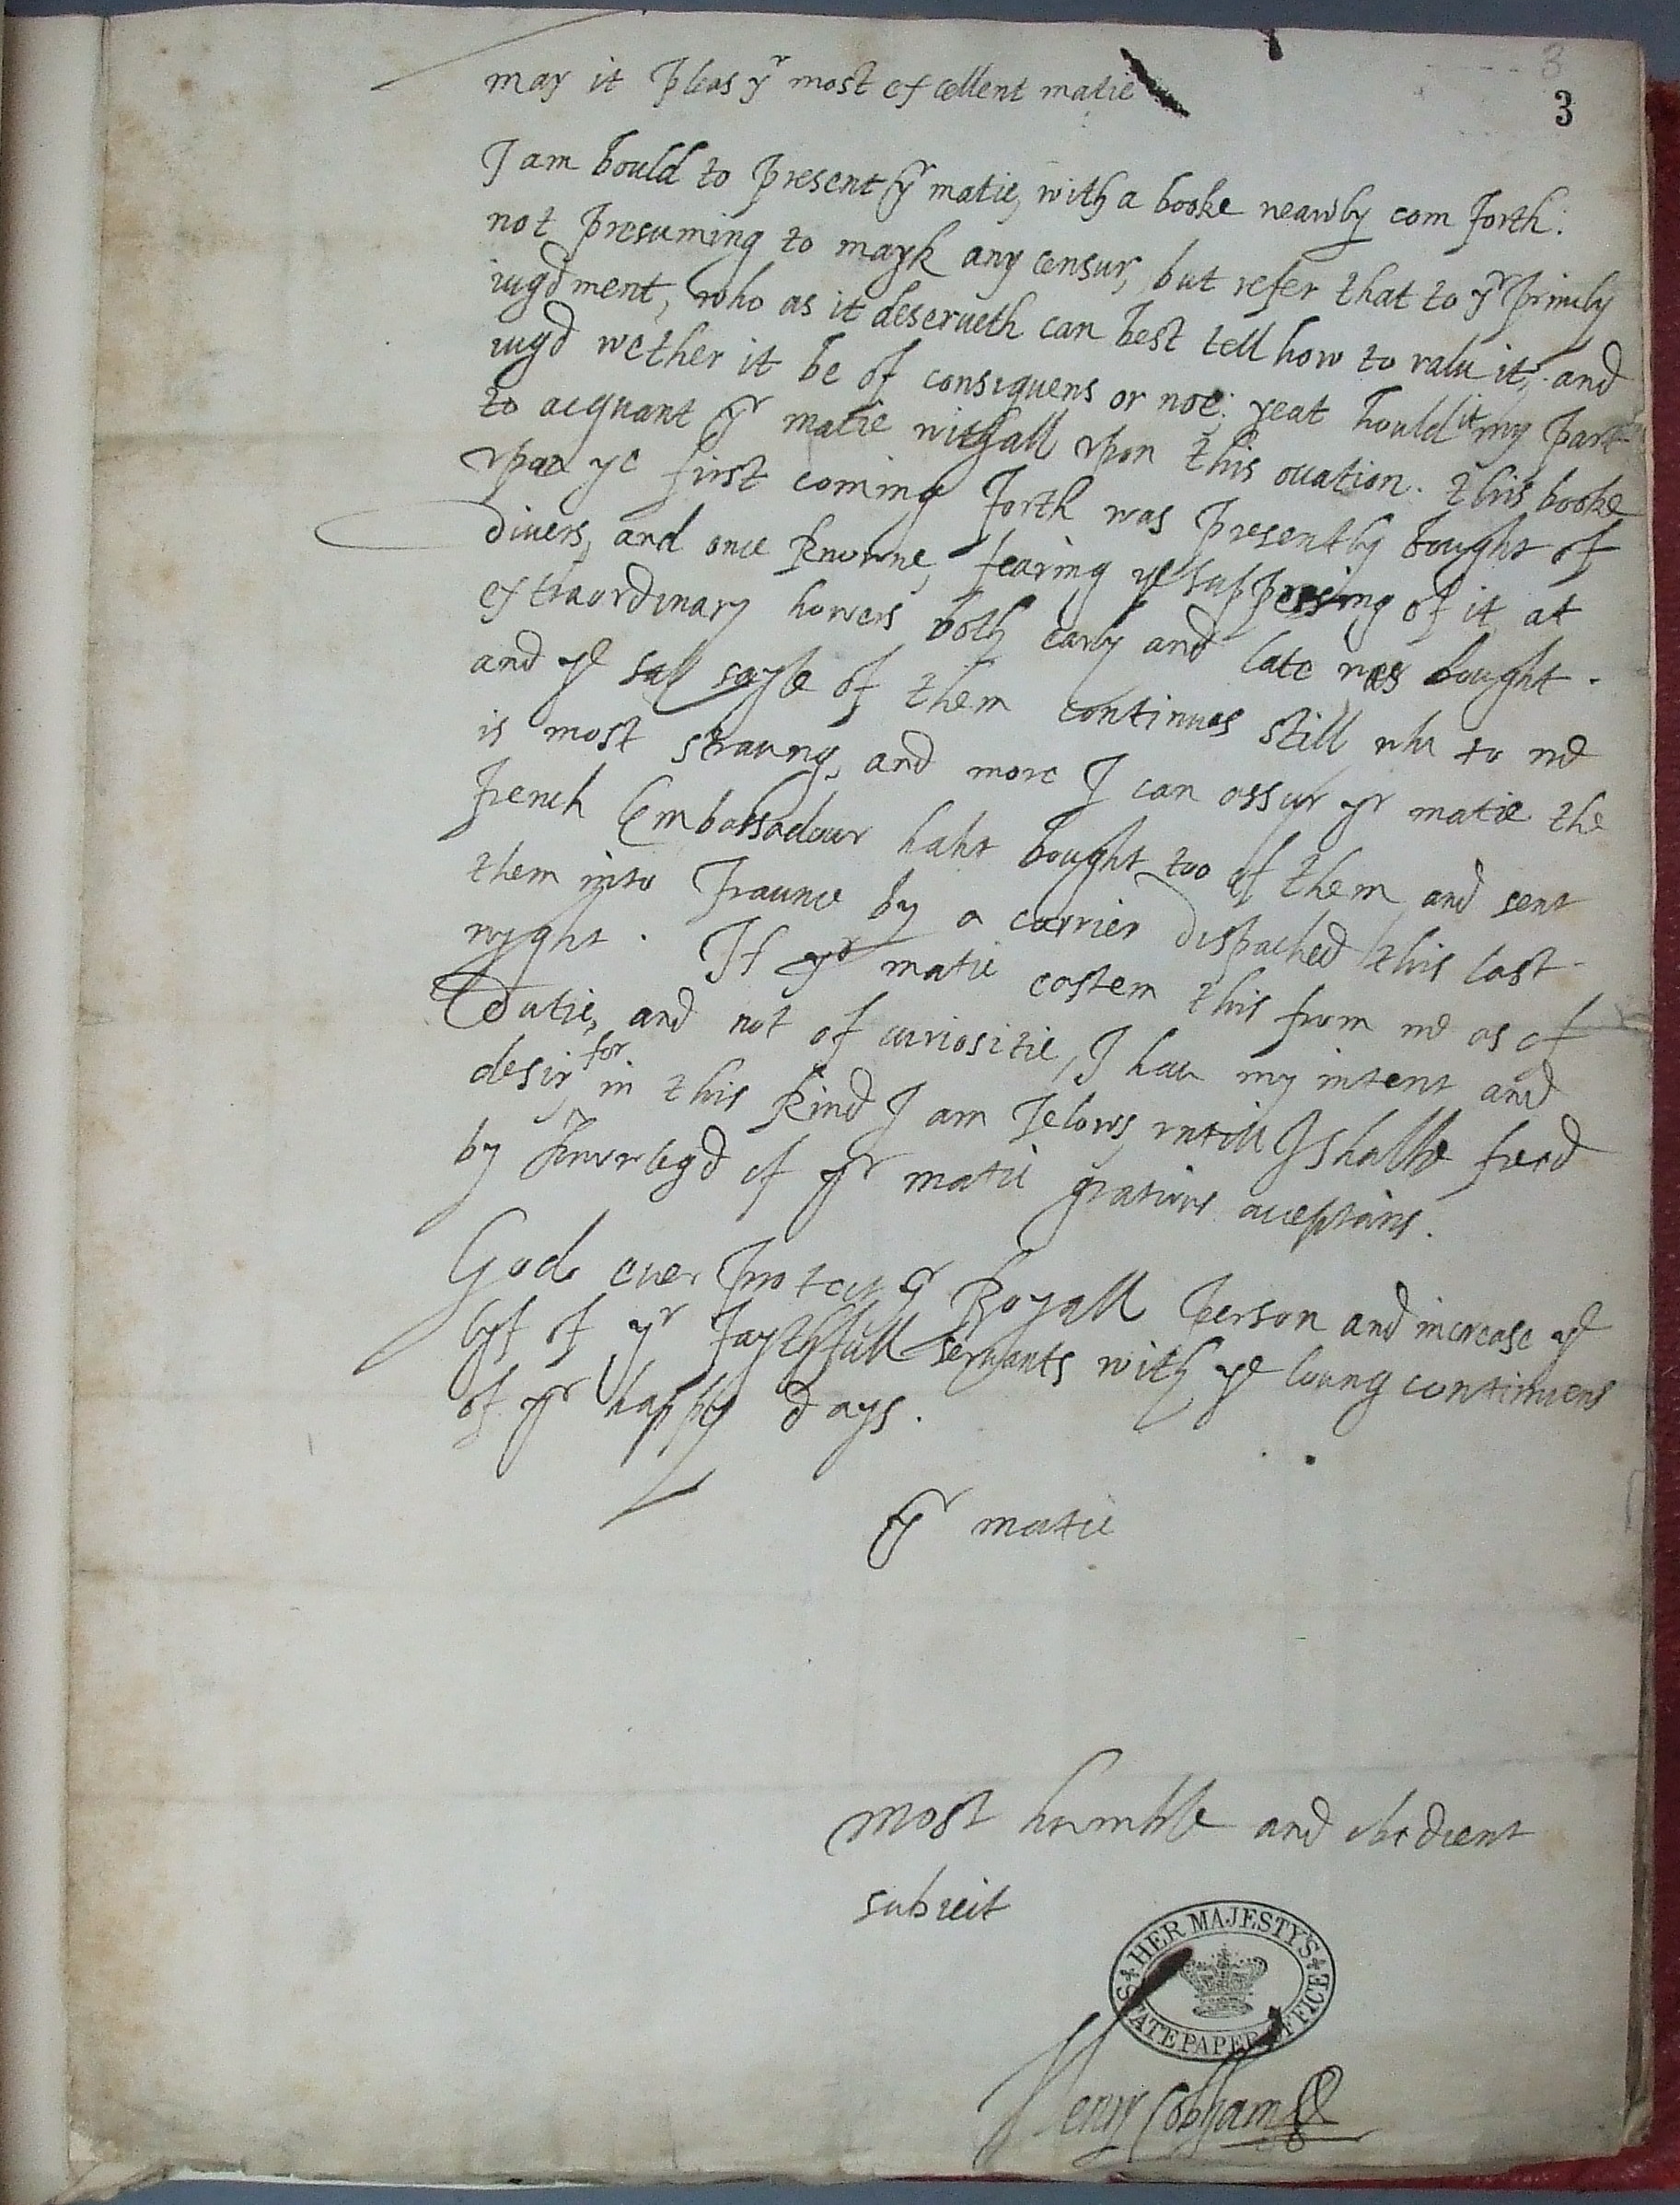 3
3
may it pleas yr most exellent matie
I am bould to present yr matie, with a booke neawly com forth:
not presuming to mayk any censur, but refer that to yr princly
iugdment, who as it deserueth can best tell how to valu it, and
iugd wether it be of consiquens or not; yeat hould it my part
to acquant yr matie withall vpon this occation. this booke
vpon ye first coming forth was presently bought of
divers, and once knowne, fearing ye suppresing of it at
extraordinary howers both early and late was bought.
and ye sayle of them continues still whi to me
is most straung, and more I can assur yr matie the
french Embassadour haht bought too of them, and sent
them into fraunce by a carrier dispached this last
nyght. If yr matie estem this from me as of
dutie, and not of curiositie, I hau my intent and
desir, for in this kind I am Jelows, vntill I shalbe
by knowlegd of yr matie gratious acceptans.
God ever protect yr Royall person and increase ye
lyf of yr faythfull servants with ye loung continuens
of yr happy days.
yr matie
most humble and obedient
subiect
HER MAJESTY'S STATE PAPER OFFICE
Henry Cobham